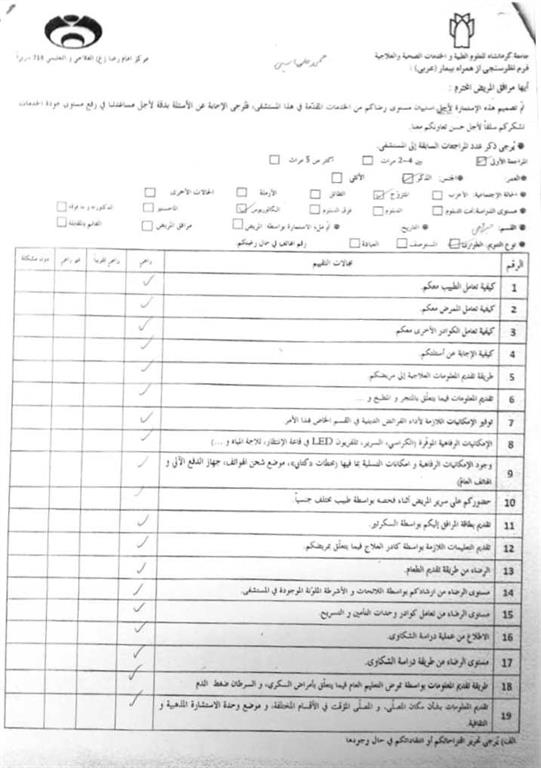 جامعة كرمانشاه للعلوم الطبية و الخدمات الصحية والعلاجية
مركز امام رضا (ع) العلاجي و التعليمي
فرم نظرسنجی از همراه بیمار (عربی) :
أيها مرافق المريض المحترم :
تمّ تصميم هذه الإستمارة لأجل استبيان مستوى رضاكم من الخدمات المقدّمة في هذا المستشفى، فلُرجى الإجابة عن الأسئلة بدقة لأجل مساعدتنا في رفع مستوى جودة الخدمات
نشكركم سلفاً لأجل حسن تعاونكم معنا.
● يُرجى ذكر عدد المراجعات السابقة إلى المستشفى.
المراجعة الأولى 2–4 مرات أكثر من 5 مرات
● العمر: ● الجنس: الذكر الأنثى
● الحالة الإجتماعية: الأعزب المتزوج الطالق الأرملة الحالات الأخرى
● مستوى الدراسة: تحت الدبلوم الدبلوم فوق الدبلوم البكالوريوس الماجستير
● القسم: ● التاريخ ● تمّ ملء الاستمارة بواسطة: المريض مرافق المريض القائم بالمقابلة
● نوع التنويم: الطوارئ المستوصف العيادة رقم الهاتف في حال رضاكم.
الرقم مجالات التقييم راضٍ راضٍ تقريباً غير راضٍ دون مشكلة
1 كيفية تعامل الطبيب معكم.
2 كيفية تعامل الممرض معكم.
3 كيفية تعامل الكوادر الأخرى معكم
4 كيفية الإجابة عن أسئلتكم.
5 طريقة تقديم المعلومات العلاجية إلى مريضكم.
6 تقديم المعلومات فيما يتعلّق بالمتجر و المطبخ و ...
7 توفير الإمكانيات اللازمة لأداء الفرائض الدينية في القسم الخاص لهذا الأمر.
8 الإمكانيات الرفاهية الموفّرة (الكراسي، السرير، تلفزيون LED في قاعة الإنتظار، ثلاجة المياه و ...)
9 وجود الإمكانيات الرفاهية و امكانات التسلية بما فيها ، موضع شحن الهواتف، جهاز الدفع الآلي و
الهاتف العام)
10 حضوركم على سرير المريض أثناء فحصه بواسطة طبيب مختلف جنسياً.
11 تقديم بطاقة المرافق إليكم بواسطة السكرتير.
12 تقديم التعليمات اللازمة بواسطة كادر العلاج فيما يتعلّق بمريضكم.
13 الرضاء من طريقة تقديم الطعام.
14 مستوى الرضاء من ارشادكم بواسطة اللائحات و الأشرطة الملوّنة الموجودة في المستشفى.
15 مستوى الرضاء من تعامل كوادر وحدات التأمين و التسريح.
16 الاطلاع من عملية دراسة الشكاوى.
17 مستوى الرضاء من طريقة دراسة الشكاوى.
18 طريقة تقديم المعلومات بواسطة ممرض التعليم العام فيما يتعلّق بأمراض السكري، و السرطان ضغط الدم
19 تقديم المعلومات بشأن مكان المصلّى، و المصلّى المؤقت في الأقسام المختلفة، و موضع وحدة الاستشارة المذهبية و
الثقافية.
الف) يُرجى تحرير اقتراحاتكم أو انتقاداتكم في حال وجودها